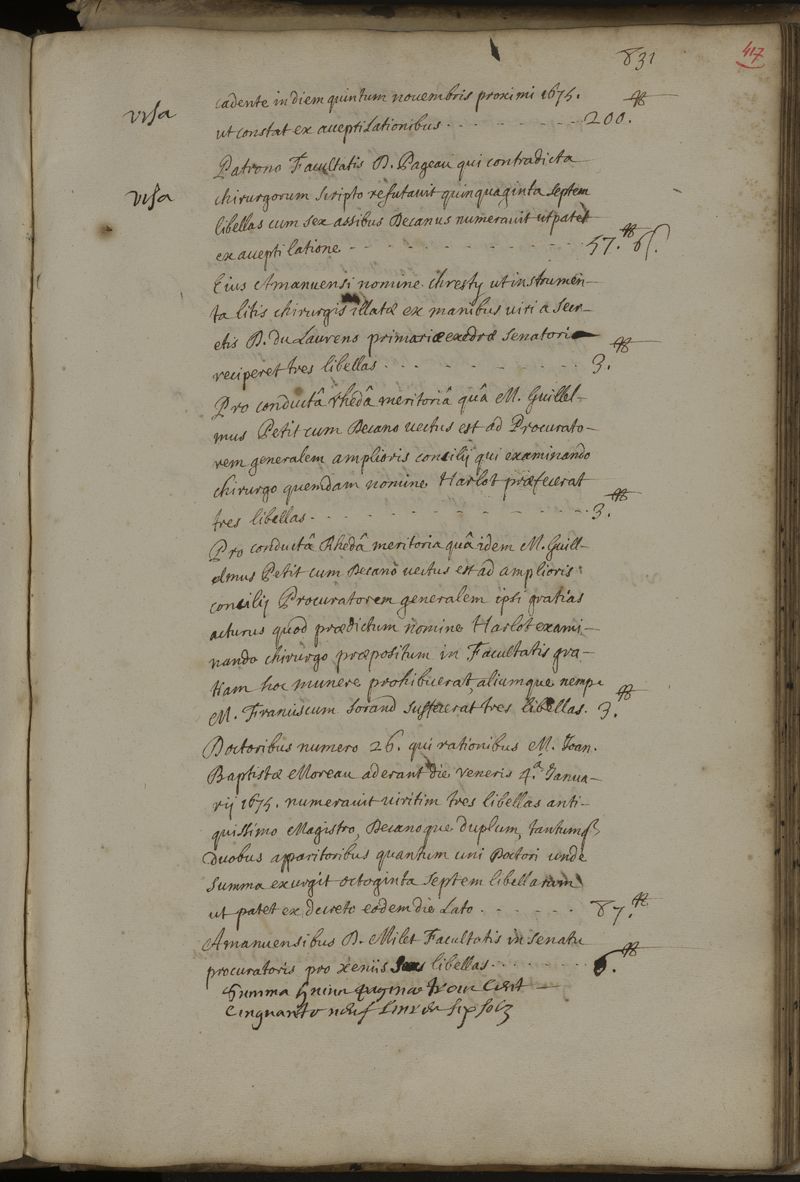 831
417
visa
cadente in diem quintum novembris proximi 1675.
ut constat ex acceptilationibus - - - - - - - - 200.
Patrono Facultatis D. Pageau qui contradicta
visa
chirurgorum scripto refutavit quinquaginta septem
libellas cum sex assibus Decanus numeravit ut patet
ex acceptilatione - - - - - - - - - 57.tt 6s.
Eius Amanuensi nomine chresty ut instrumen-
ta litis chirurgis illatæ ex manibus viri a Secr-
etis D. Du Laurens primariæ exedræ Senatoriæ
reciperet tres libellas - - - - - - - - 3.tt
Pro conductâ rhedâ meritoriâ quâ M. Guillel-
mus Petit cum Decano vectus est ad Procurato-
rem generalem amplioris consilij qui examinando
chirurgo quemdam nomine Harlot præfecerat
tres libellas - - - - - - - - - 3.tt
Pro conductâ Rhedâ meritoria quâ idem M. Guill-
elmus Petit cum Decano vectus est ad amplioris
consilij Procuratorem generalem ipsi gratias
acturus quod prædictum nomine Harlot exami-
nando chirurgo præpositum in Facultatis gra-
tiam hoc munere prohibuerat, aliumque nempe
M. Franciscum Lorand suffecerat tres libellas. 3.tt
Doctoribus numero 26. qui rationibus M. Joan.
Baptistæ Moreau aderant die veneris 4.a Janua-
rij 1675. numeravit viritim tres libellas anti-
quissimo Magistro, Decanoque duplum, tantumq
duobus apparitoribus quantum uni Doctori unde
summa exurgit octoginta septem libellarum
ut patet ex decreto eodem die Lato - - - - - - 87.tt
Amanuensibus D. Milet Facultatis in Senatu
procuratoris pro xeniis sex libellas - - - - - - 6.tt
Summa huius paginæ trois Cent
Cinquante neuf Livres six solz